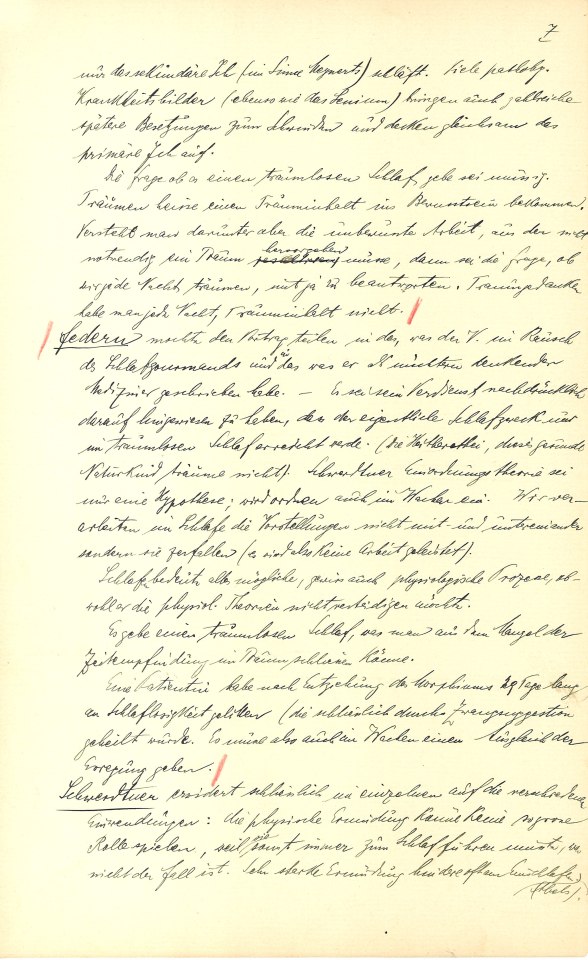 7
nur das sekundäre Ich (im Sinne Meynerts) schläft. Viele patholog.
Krankheitsbilder (ebenso wie das Senium) bringen auch zahlreiche
spätere Besetzungen zum Schwinden und decken gleichsam das
primäre Ich auf.
Die Frage ob es einen traumlosen Schlaf gebe sei müssig.
Träumen heisse einen Trauminhalt ins Bewusstsein bekommen.
Versteht man darunter aber die unbewusste Arbeit, aus der nicht
notwendig ein Traum hervorgehen müsse, dann sei die Frage, ob
wir jede Nacht träumen, mit ja zu beantworten. Traumgedanken
habe man jede Nacht, Trauminhalt nicht.
Federn möchte den Vortrag teilen in das, was der V. im Rausch
des Schlafgourmands und in das was er als nüchtern denkender
Mediziner geschrieben habe. — Es sei sein Verdienst nachdrücklich
darauf hingewiesen zu haben, dass der eigentliche Schlafzweck nur
im traumlosen Schlaf erreicht werde. (die dieses gesunde
Naturkind träume nicht). Schwerdtner Einordnungstheorie sei
nur eine Hypothese; wir ordnen auch im Wachen ein. Wir ver-
arbeiten im Schlafe die Vorstellungen nicht mit und untereinander
sondern sie zerfallen (es wird also keine Arbeit geleistet).
Schlaf bedeute alles mögliche, gewiss auch physiologische Prozesse, ob-
wohl er die physiol. Theorien nicht verteidigen möchte.
Es gebe einen traumlosen Schlaf, was man aus dem Mangel der
Zeitempfindung im Traum schliessen könne.
Eine Patientin habe nach Entziehung des Morphiums 29 Tage lang
an Schlaflosigkeit gelitten (die schliesslich durch Zwangssuggestion
geheilt wurde. Es müsse also auch im Wachen einen Ausgleich der
Erregung geben.
Schwerdtner erwidert schliesslich im einzelnen auf die verschiedenen
Einwendungen: die physische Ermüdung könne keine so grosse
Rolle spielen, weil sie sonst immer zum Schlaf führen müsste, was
nicht der Fall ist. Sehr starke Ermüdung hindere oft am Einschlafen